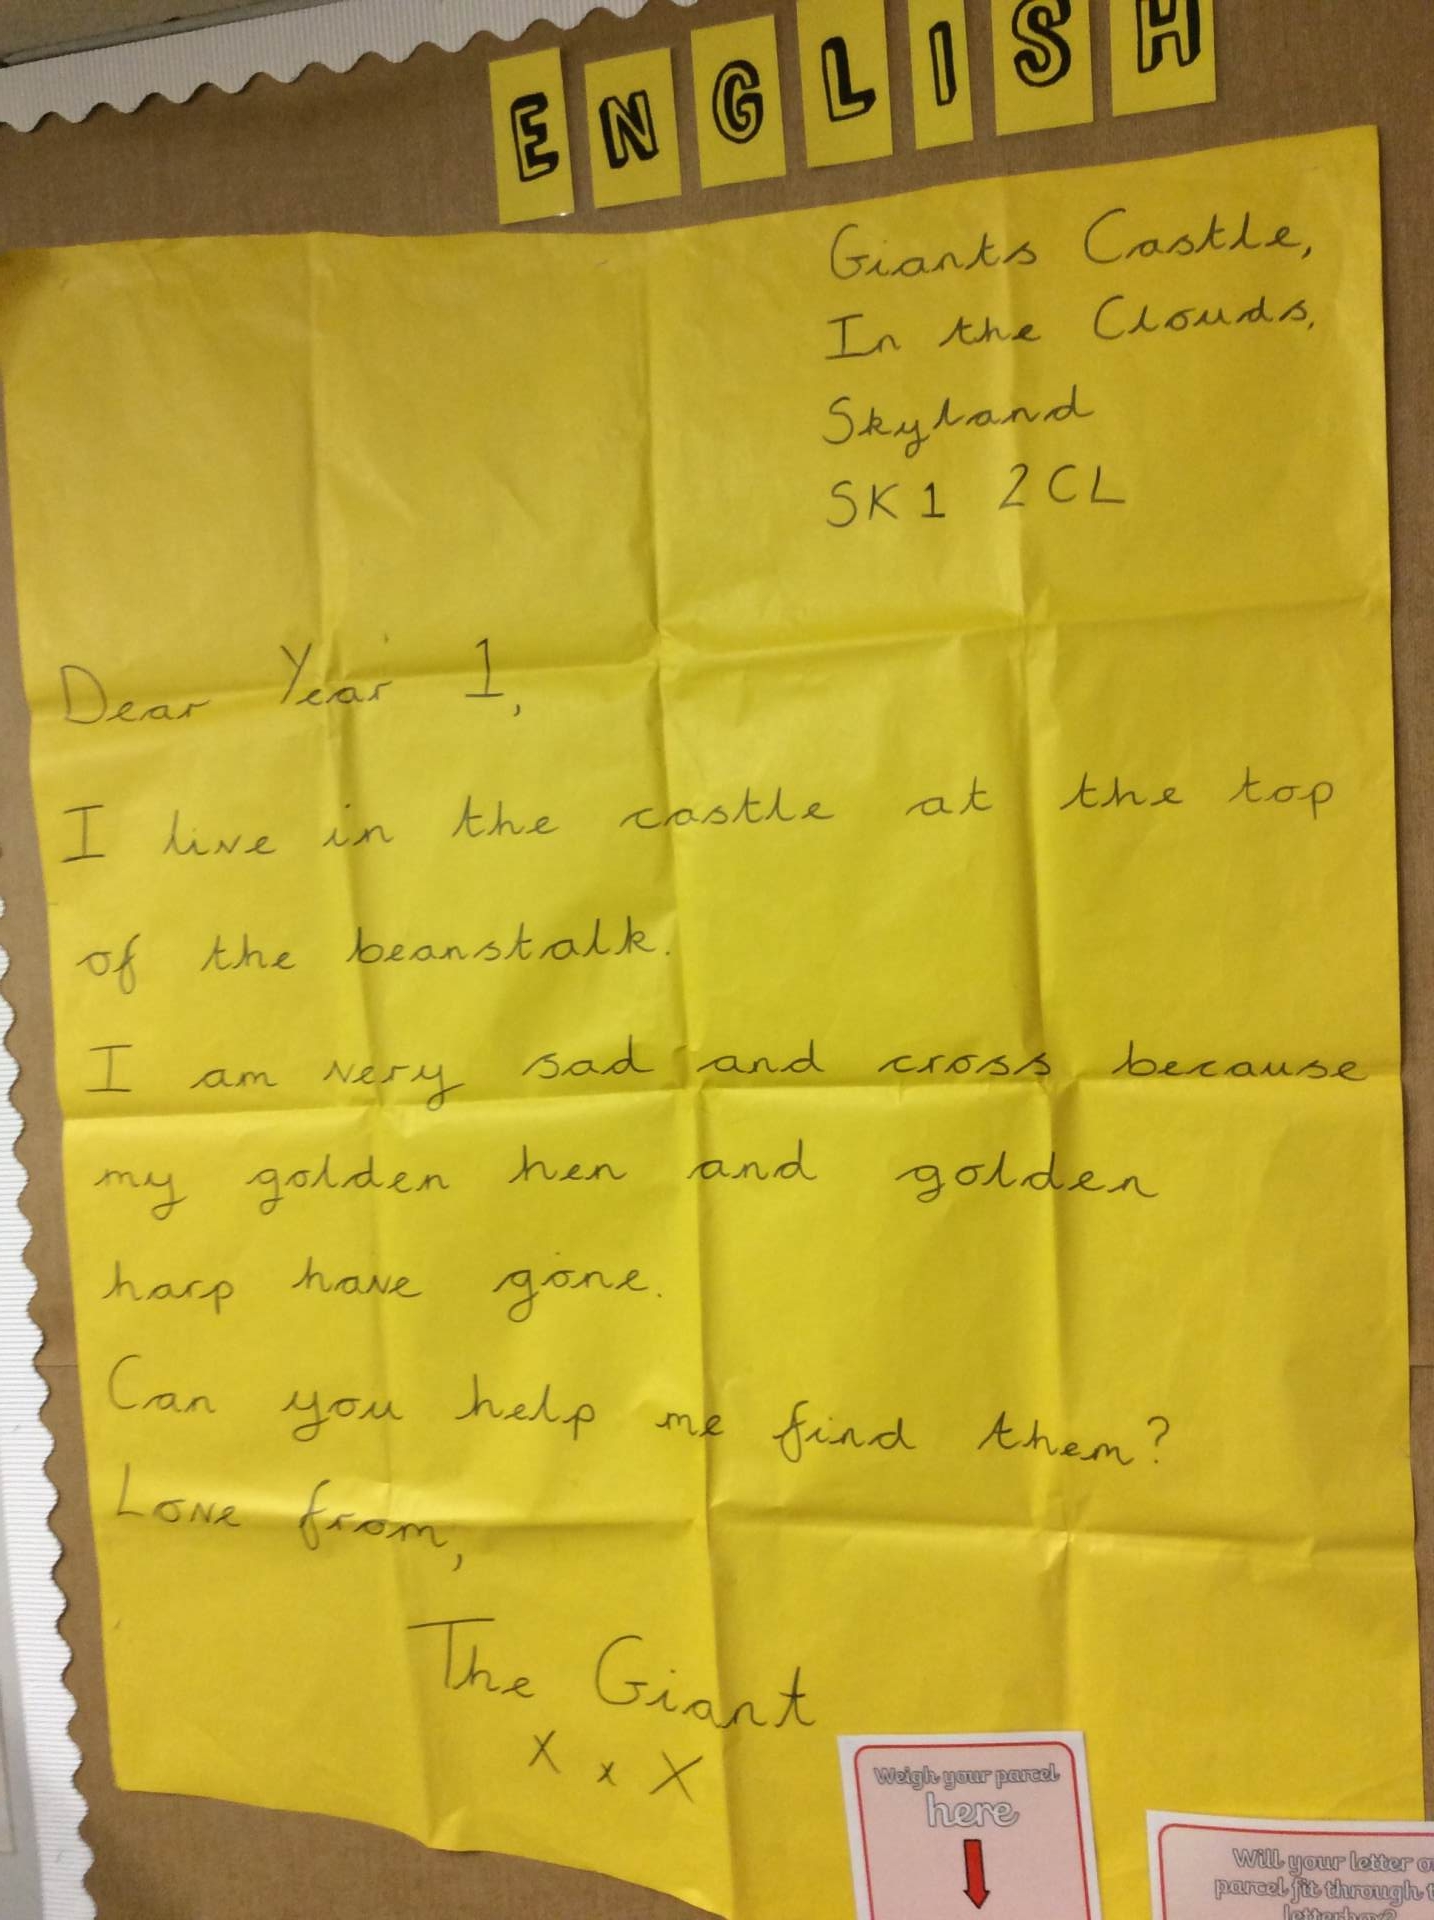 ENGLISH
Giants Castle,
In the Clouds,
Skyland
SK1 2CL
Dear Year 1,
I live in the castle at the top
of the beanstalk.
I am very sad and cross because
my golden hen and golden
harp have gone.
Can you help me find them?
Love from,
The Giant
x x x
Weigh your parcel
here
Will your letter
parcel fit through
letterbox?